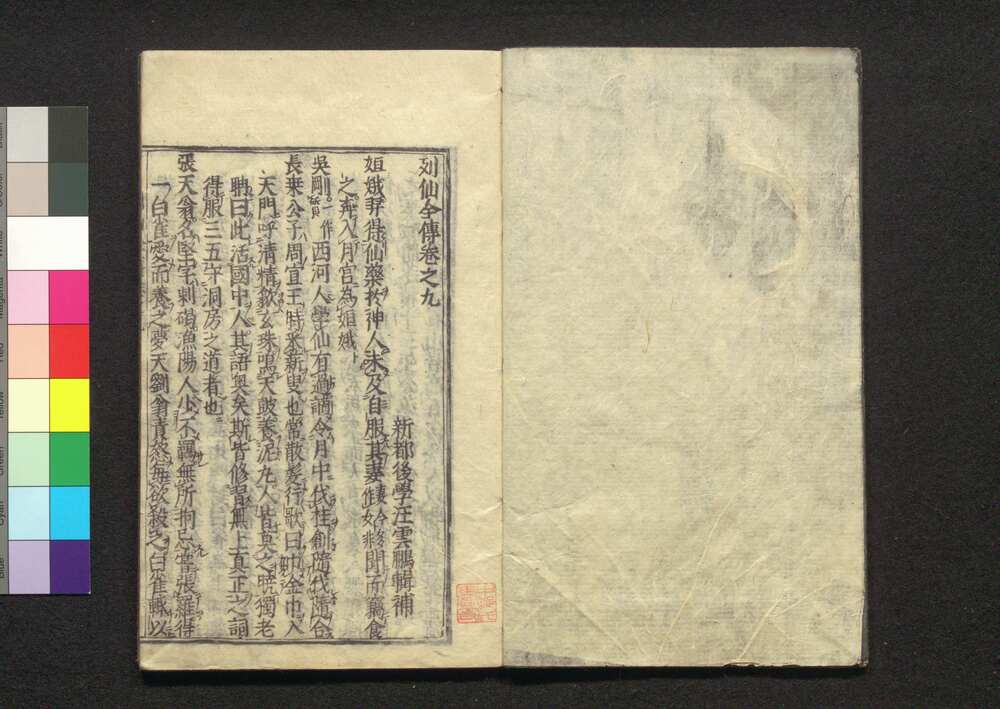 列仙全傳卷之九
新都後學汪雲鵬輯補
姮娥羿得仙藥於神人未及自服其妻作妹今終聞而竊食
之奔入月宮為姮娥
吳剛一作質西河人學仙有過謫令月中伐桂創隨伐隨合
長乗公子周宣王時采薪叟也常散髮行歌曰巾金巾入
天門呼清精歙玄珠鳴天皷養泥丸人皆莫之曉獨老
聃曰此活國中人其語奥矣斯皆修習無上真正之詞
得服三五守洞房之道者也
張天翁名堅字刺渴漁陽人少不羈無所拘忌常張羅得
一白雀愛而養之夢天劉翁責怒每欲殺之白雀輒以